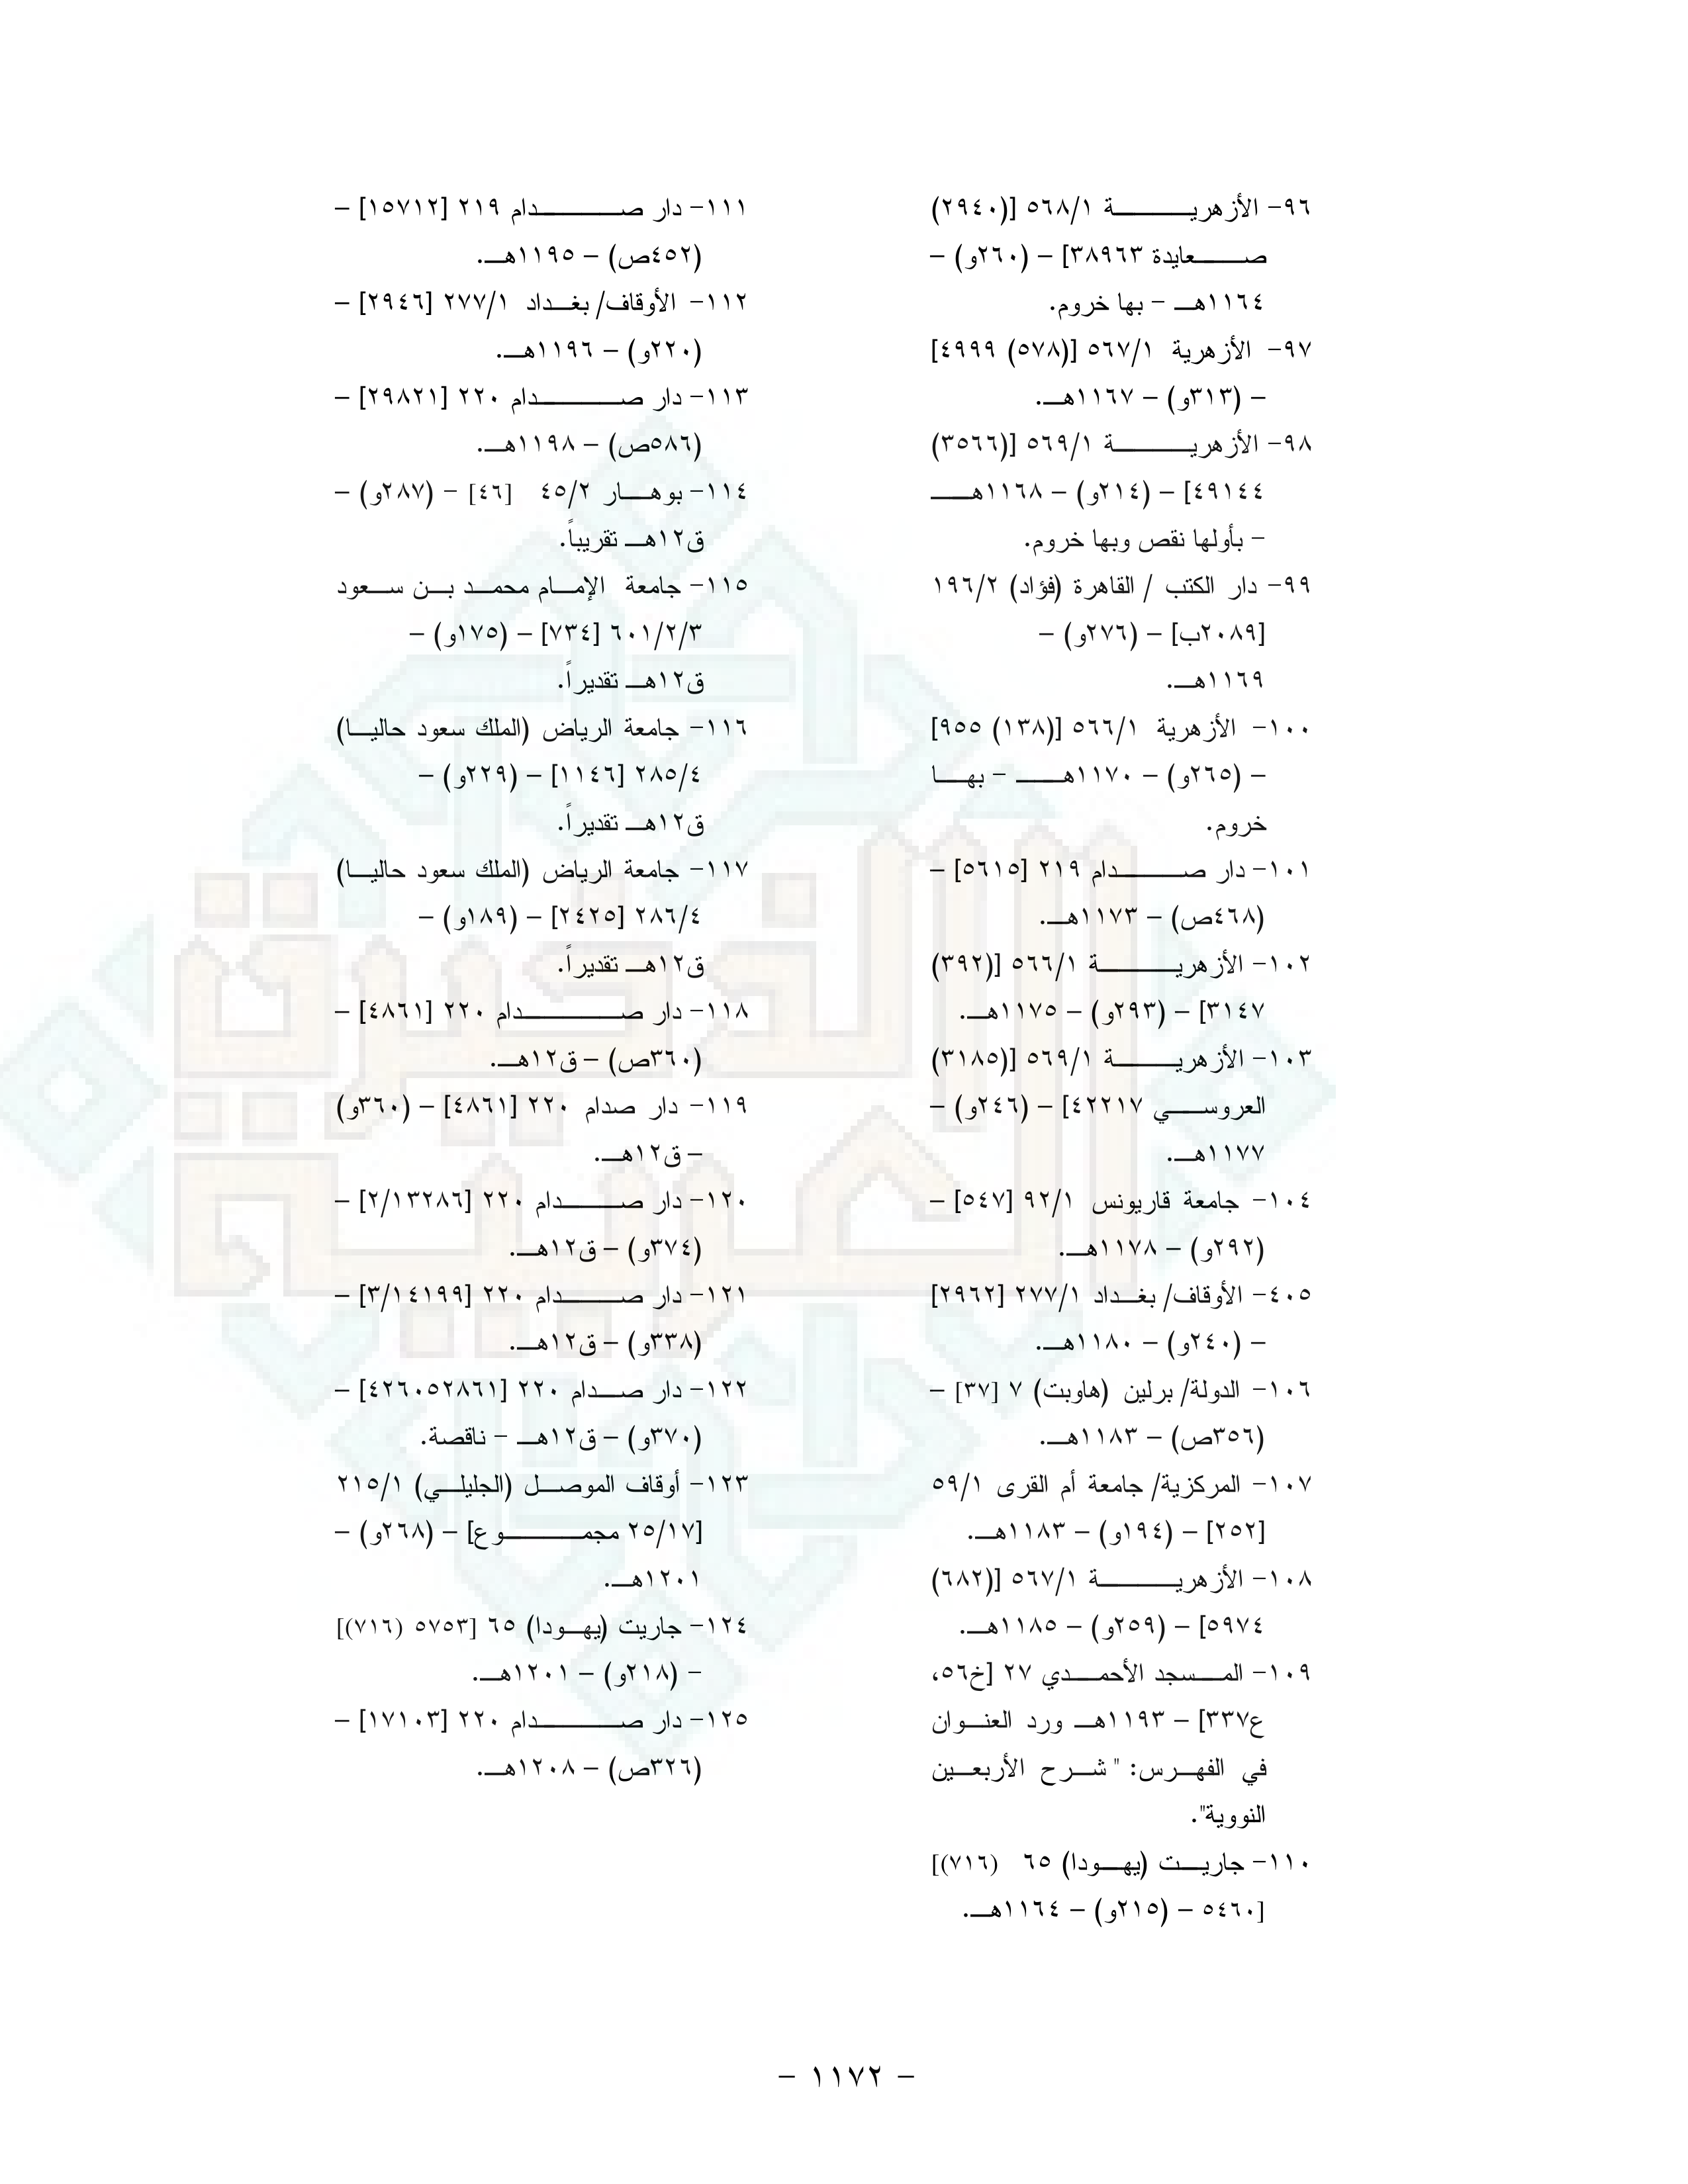 ٩٦- الأزهرية ٥٦٨/١ [(٢٩٤٠)
صعايدة ٣٨٩٦٣] – (٢٦٠و) –
١١٦٤هـ – بها خروم.
٩٧- الأزهرية ٥٦٧/١ [(٥٧٨) ٤٩٩٩]
– (٣١٣و) – ١١٦٧هـ.
٩٨- الأزهرية ٥٦٩/١ [(٣٥٦٦)
٤٩١٤٤] – (٢١٤و) – ١١٦٨هـ
– بأولها نقص وبها خروم.
٩٩- دار الكتب / القاهرة (فؤاد) ١٩٦/٢
[٢٠٨٩ب] – (٢٧٦و) –
١١٦٩هـ.
١٠٠- الأزهرية ٥٦٦/١ [(١٣٨) ٩٥٥]
– (٢٦٥و) – ١١٧٠هـ – بها
خروم.
١٠١- دار صدام ٢١٩ [٥٦١٥] –
(٤٦٨ص) – ١١٧٣هـ.
١٠٢- الأزهرية ٥٦٦/١ [(٣٩٢)
٣١٤٧] – (٢٩٣و) – ١١٧٥هـ.
١٠٣- الأزهرية ٥٦٩/١ [(٣١٨٥)
العروسي ٤٢٢١٧] – (٢٤٦و) –
١١٧٧هـ.
١٠٤- جامعة قاريونس ٩٢/١ [٥٤٧] –
(٢٩٢و) – ١١٧٨هـ.
٤٠٥- الأوقاف/ بغداد ٢٧٧/١ [٢٩٦٢]
– (٢٤٠و) – ١١٨٠هـ.
١٠٦- الدولة/ برلين (هاوبت) ٧ [٣٧] –
(٣٥٦ص) – ١١٨٣هـ.
١٠٧- المركزية/ جامعة أم القرى ٥٩/١
[٢٥٢] – (١٩٤و) – ١١٨٣هـ.
١٠٨- الأزهرية ٥٦٧/١ [(٦٨٢)
٥٩٧٤] – (٢٥٩و) – ١١٨٥هـ.
١٠٩- المسجد الأحمدي ٢٧ [خ٥٦،
ع٣٣٧] – ١١٩٣هـ ورد العنوان
في الفهرس: "شرح الأربعين
النووية".
١١٠- جاريت (يهودا) ٦٥ (٧١٦)]
[٥٤٦٠ – (٢١٥و) – ١١٦٤هـ.
١١١- دار صدام ٢١٩ [١٥٧١٢] –
(٤٥٢ص) – ١١٩٥هـ.
١١٢- الأوقاف/ بغداد ٢٧٧/١ [٢٩٤٦] –
(٢٢٠و) – ١١٩٦هـ.
١١٣- دار صدام ٢٢٠ [٢٩٨٢١] –
(٥٨٦ص) – ١١٩٨هـ.
١١٤- بوهار ٤٥/٢ [٤٦] – (٢٨٧و) –
ق١٢هـ تقريباً.
١١٥- جامعة الإمام محمد بن سعود
٦٠١/٢/٣ [٧٣٤] – (١٧٥و) –
ق١٢هـ تقديراً.
١١٦- جامعة الرياض (الملك سعود حاليا)
٢٨٥/٤ [١١٤٦] – (٢٢٩و) –
ق١٢هـ تقديراً.
١١٧- جامعة الرياض (الملك سعود حاليا)
٢٨٦/٤ [٢٤٢٥] – (١٨٩و) –
ق١٢هـ تقديراً.
١١٨- دار صدام ٢٢٠ [٤٨٦١] –
(٣٦٠ص) – ق١٢هـ.
١١٩- دار صدام ٢٢٠ [٤٨٦١] – (٣٦٠و)
– ق١٢هـ.
١٢٠- دار صدام ٢٢٠ [٢/١٣٢٨٦] –
(٣٧٤و) – ق١٢هـ.
١٢١- دار صدام ٢٢٠ [٣/١٤١٩٩] –
(٣٣٨و) – ق١٢هـ.
١٢٢- دار صدام ٢٢٠ [٤٢٦٠٥٢٨٦١] –
(٣٧٠و) – ق١٢هـ – ناقصة.
١٢٣- أوقاف الموصل (الجليلي) ٢١٥/١
[٢٥/١٧ مجموع] – (٢٦٨و) –
١٢٠١هـ.
١٢٤- جاريت (يهودا) ٦٥ [٥٧٥٣ (٧١٦)]
– (٢١٨و) – ١٢٠١هـ.
١٢٥- دار صدام ٢٢٠ [١٧١٠٣] –
(٣٢٦ص) – ١٢٠٨هـ.
– ١١٧٢ –
الذخيرة
العربية